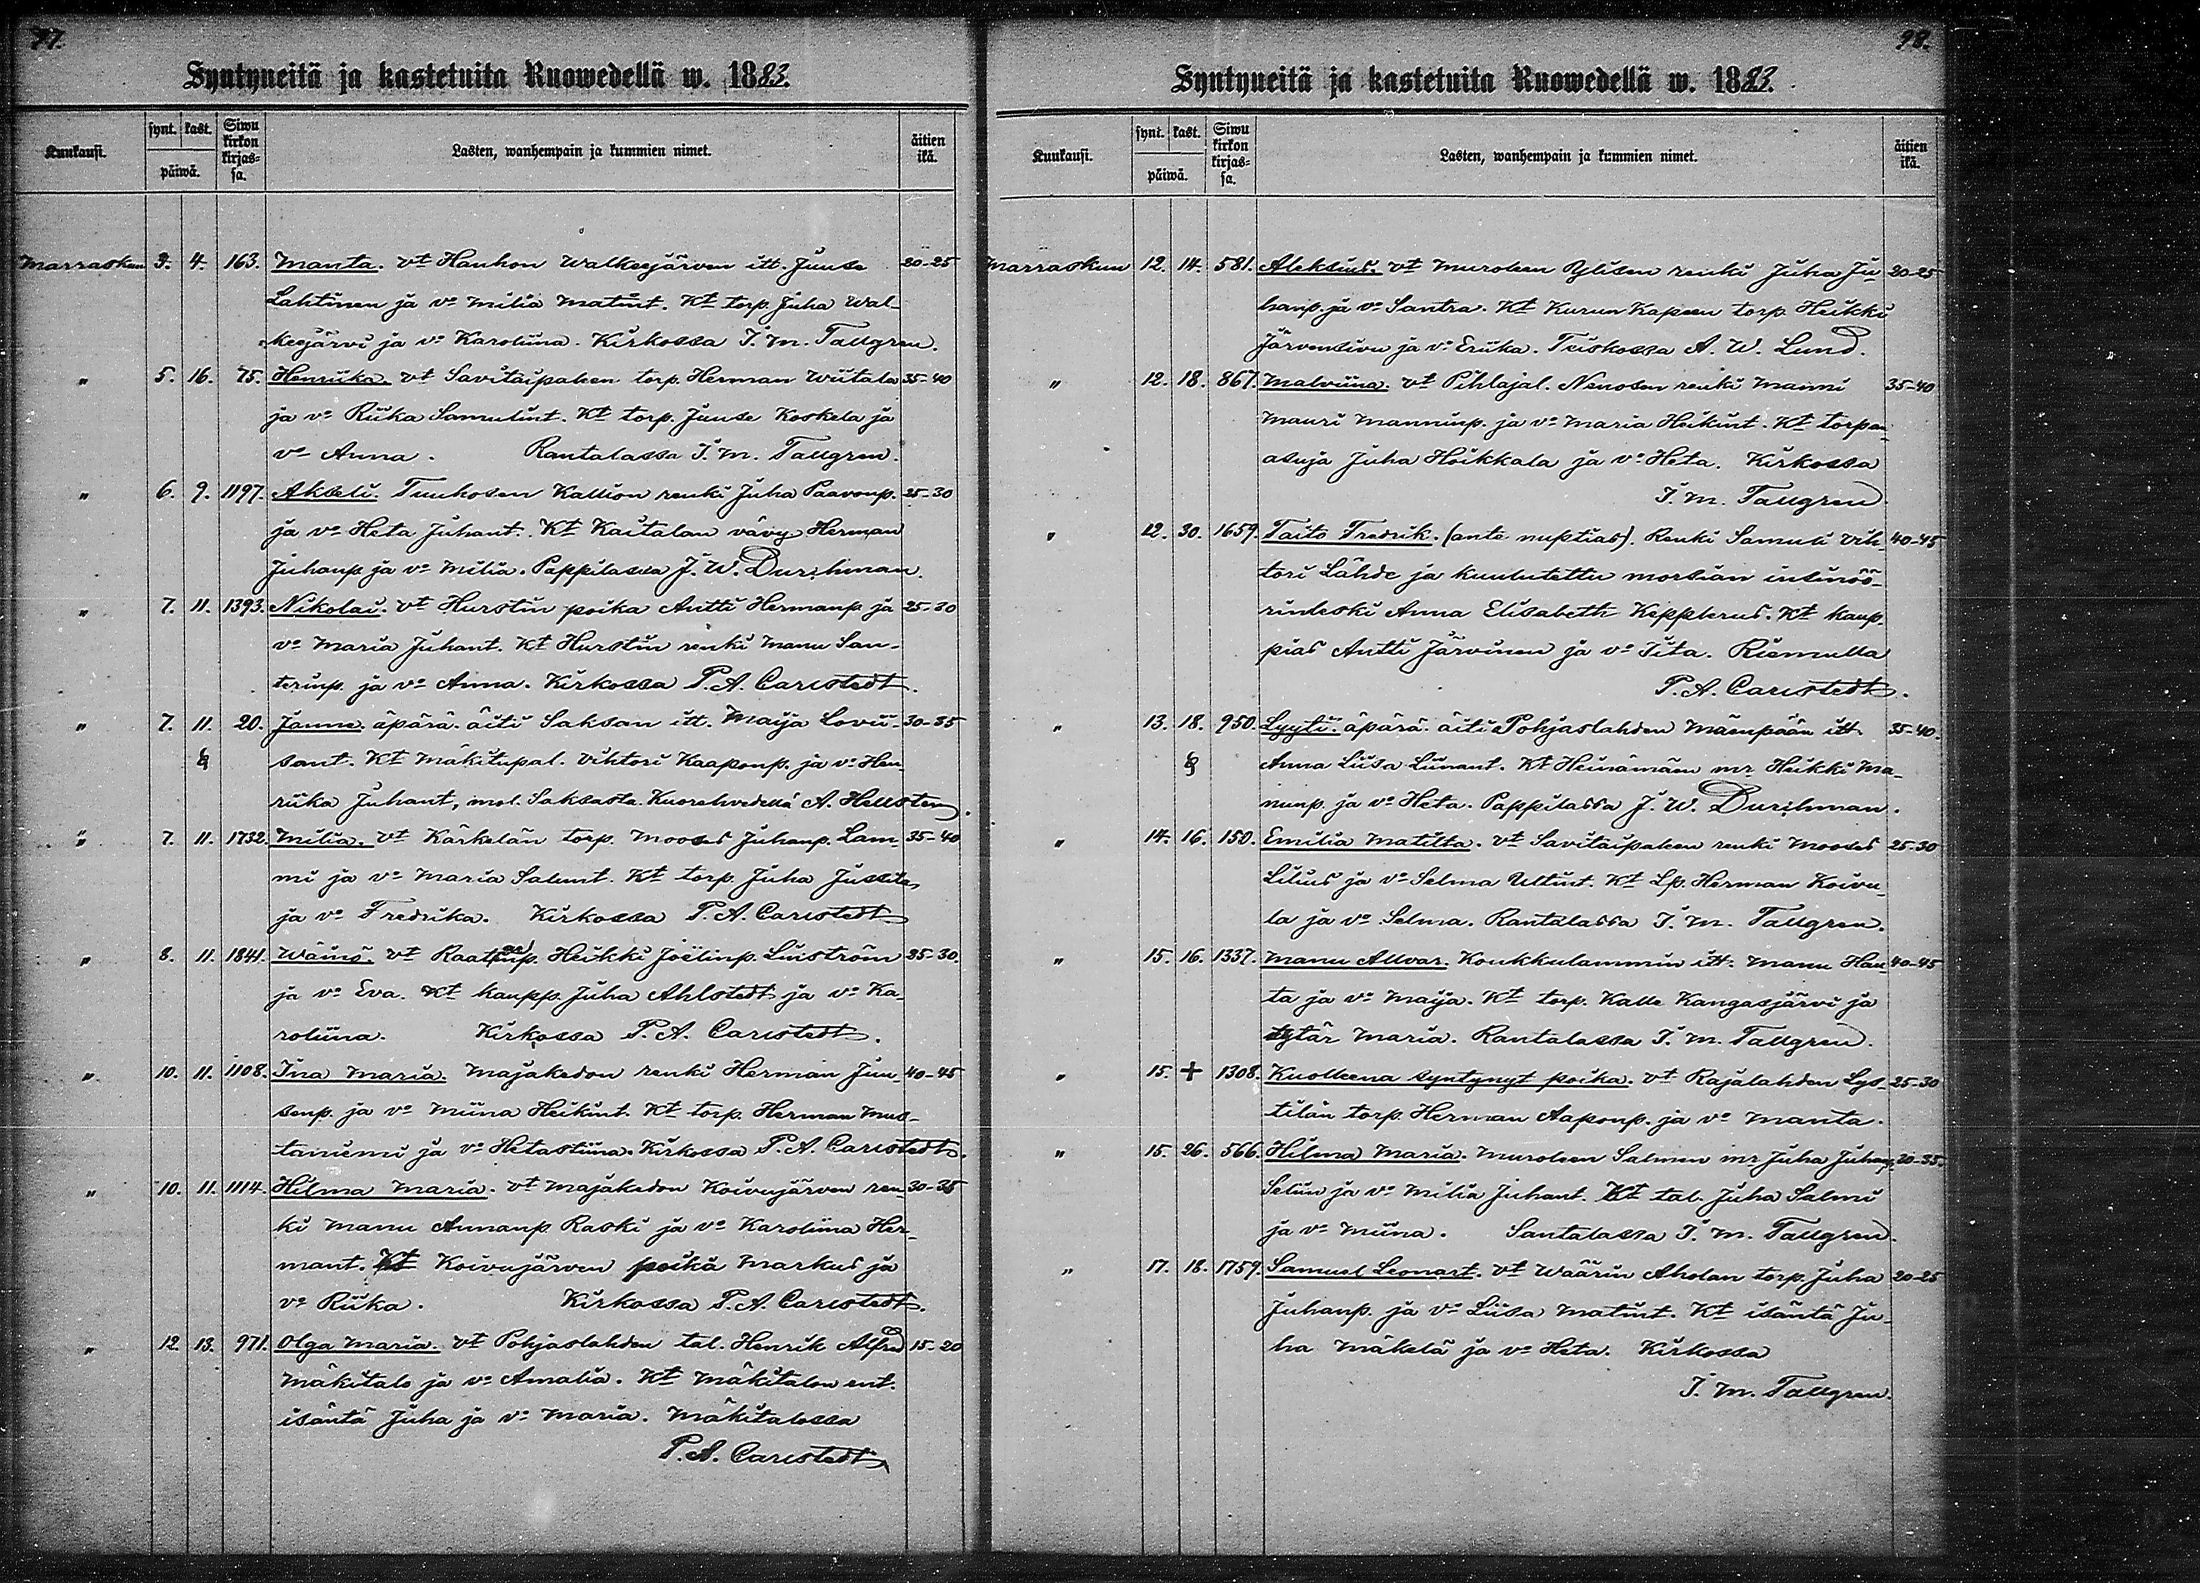 77.
Syntyneitä ja kastetuita Ruowedellä w. 1883.
Kuukausi.
synt. kast.
päiwä.
Siwu kirkon kirjas=sa.
Lasten, wanhempain ja kummien nimet.
äitien ikä.
Marraskun 3. 4. 163. Manta. vt Hanhon Walkeejärven itt. Juuse 20-25
Lahtinen ja vo Milia Matint. Kt torp. Juha Wal-
keejärvi ja vo Karoliina. Kirkossa I. M. Tallgren.
" 5. 16. 75. Henriika. vt Savitaipaleen torp. Herman Wiitala 35-40
ja vo Riika Samulint. Kt torp. Juuse Koskela ja
vo Anna. Rantalassa I. M. Tallgren.
" 6. 9. 1197. Akseli. Tuuhosen Kallion renki Juha Paavonp. 25-30
ja vo Heta Juhant. Kt Kaitalan vävy Herman
Juhanp. ja vo Milia. Pappilassa J. W. Durchman.
" 7. 11. 1393. Nikolai. vt Hurstin poika Antti Hermanp. ja 25-30
vo Maria Juhant. Kt Hurstin renki Manu San-
terinp. ja vo Anna. Kirkossa P. A. Carlstedt.
" 7. 11. 20. Janne. äpärä. äiti Saksan itt. Maija Lovii- 30-35
§ sant. Kt mäkitupal. Vihtori Kaaponp. ja vo Hen-
riika Juhant, mol. Saksasta. Kuorehvedellä A. Hellsten.
" 7. 11. 1732. Milia. vt Kärkelän torp. Mooses Juhanp. Lam- 35-40
mi ja vo Maria Salunt. Kt torp. Juha Jussila
ja vo Fredrika. Kirkossa P. A. Carlstedt
" 8. 11. 1841. Wäinö. vt Heikki Joëlinp. Liiström 25-30.
ja vo Eva. Kt kaupp. Juha Ahlstedt ja vo Ka-
roliina. Kirkossa P. A. Carlstedt.
" 10. 11. 1108. Ina Maria. Majakedon renki Herman Juu- 40-45
senp. ja vo Miina Heikint. Kt torp. Herman Mus-
taniemi ja vo Hetastiina. Kirkossa P. A. Carlstedt.
" 10. 11. 1114. Hilma Maria. vt Majakedon Koivujärven ren- 30-35
ki Manu Annanp. Raski ja vo Karoliina Her-
mant. Kt Koivujärven poika Markus ja
vo Riika. Kirkossa P. A. Carlstedt.
" 12. 13. 971. Olga Maria. vt Pohjaslahden tal. Henrik Alfred 15-20
Mäkitalo ja vo Amalia. Kt Mäkitalon ent.
isäntä Juha ja vo Maria. Mäkitalossa
P. A. Carlstedt
98.
Syntyneitä ja kastetuita Ruowedellä w. 1883.
Kuukausi.
synt. kast.
päiwä.
Siwu kirkon kirjas=sa.
Lasten, wanhempain ja kummien nimet.
äitien ikä.
Marraskun 12. 14. 581. Aleksius. vt Muroleen Ylisen renki Juha Ju- 20-25
hanp. ja vo Santra. Kt Kurun Kapeen torp. Heikki
Järvensivu ja vo Eriika. Teiskossa A. W. Lund.
" 12. 18. 867. Malviina. vt Pihlajal. Nenosen renki Manni 35-40
Mauri Manninp. ja vo Maria Heikint. Kt torpan
asuja Juha Hoikkala ja vo Heta. Kirkossa
I. M. Tallgren
" 12. 30. 1659. Taito Fredrik. (ante nuptias). Renki Samuli Vih- 40-45
tori Lähde ja kuulutettu morsian insinöö-
rinleski Anna Elisabeth Kepplerus. Kt kaup-
pias Antti Järvinen ja vo Iita. Riemulla
P. A. Carlstedt.
" 13. 18. 950. Lyyti. äpärä. äiti Pohjaslahden Mäenpään itt. 35-40.
§ Anna Liisa Liinant. Kt Heinämäen mr Heikki Ma-
nunp. ja vo Heta. Pappilassa J. W. Durchman.
" 14. 16. 150. Emilia Matilta. vt Savitaipaleen renki Mooses 25-30
Lilius ja vo Selma Ultint. Kt Lp. Herman Koivu-
la ja vo Selma. Rantalassa I. M. Tallgren.
" 15. 16. 1337. Manu Allvar. Koukkulammin itt. Manu Hau- 40-45
ta ja vo Maija. Kt torp. Kalle Kangasjärvi ja
tytär Maria. Rantalassa I. M. Tallgren.
" 15. + 1308. Kuolleena syntynyt poika. vt Rajalahden Lys- 25-30
tilän torp. Herman Aaponp. ja vo Manta.
" 15. 26. 566. Hilma Maria. Muroleen Salmen mr Juha Juhanp. 20-35.
Selin ja vo Milia Juhant. Kt tal. Juha Salmi
ja vo Miina. Santalassa I. M. Tallgren.
" 17. 18. 1759. Samuel Leonart. vt Wäärin Aholan torp. Juha 20-25
Juhanp. ja vo Liisa Matint. Kt isäntä Ju-
ha Mäkelä ja vo Heta. Kirkossa
I. M. Tallgren.